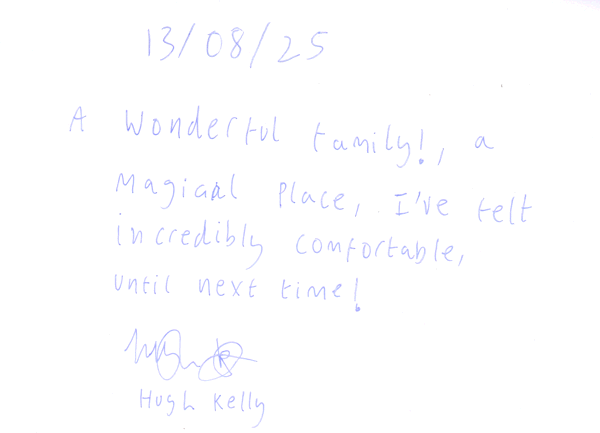 13/08/25
A wonderful family!, a
magical place, I've felt
incredibly comfortable,
until next time!
Hugh Kelly